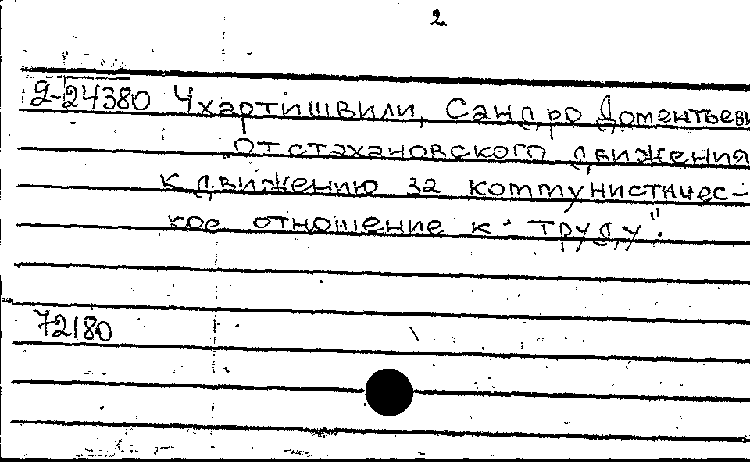 2
2-24380 Чхартишвили, Сандро Доментьеви
"От стахановского движения
к движению за коммунистичес-
кое отношение к труду".
72180